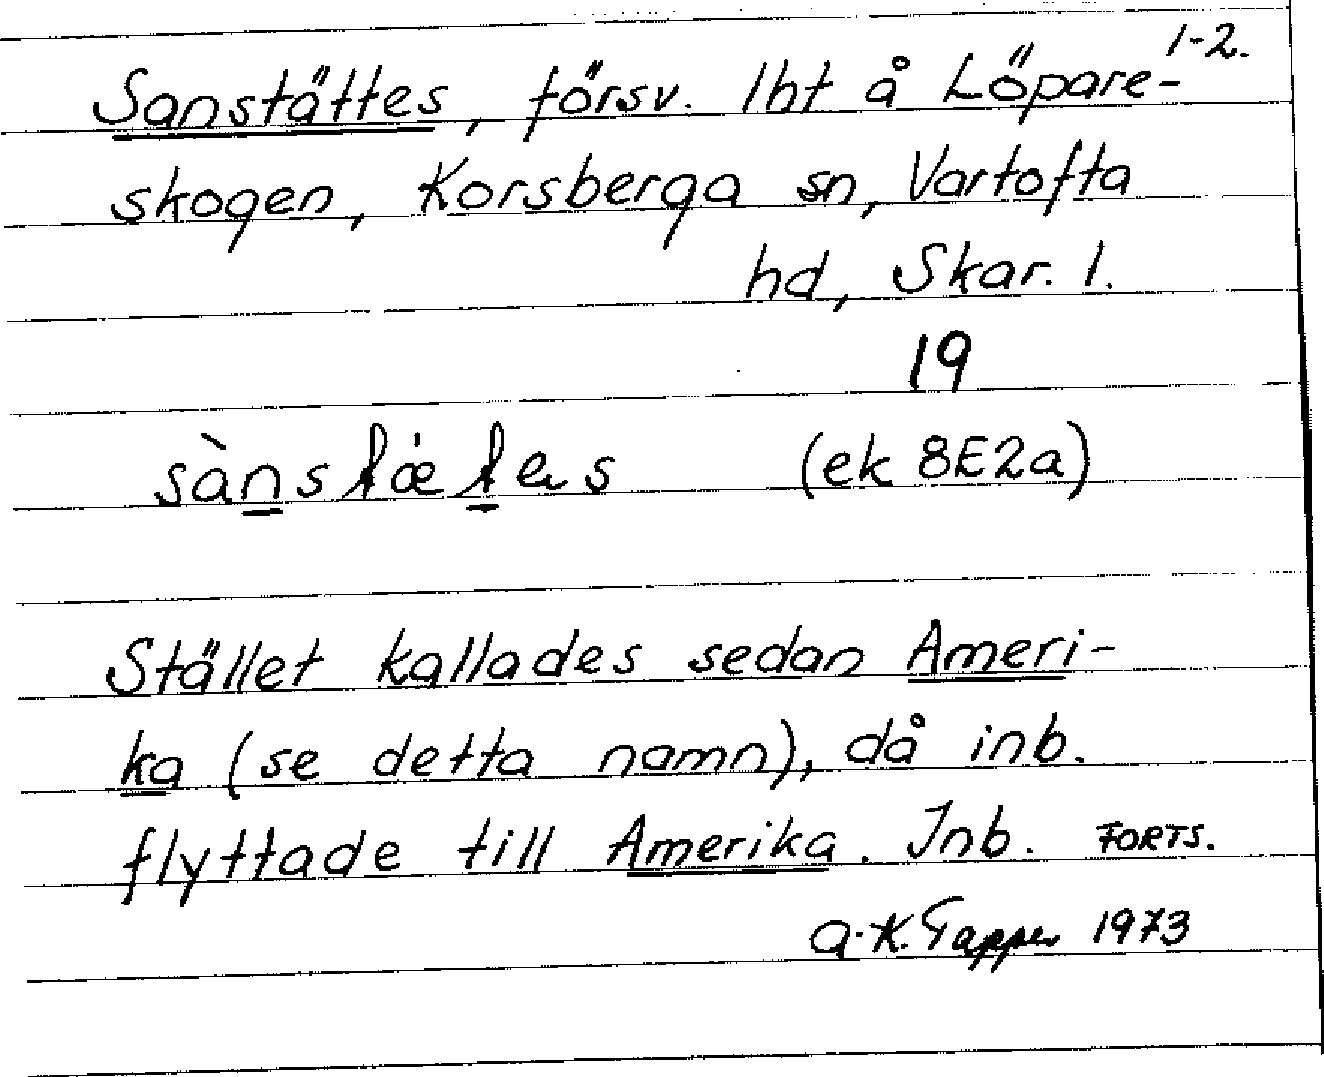 1-2.
Sanstättes, försv. lht å Löpare-
skogen, Korsberga sn, Vartofta
hd, Skar. l.
19
(ek 8E2a)
Stället kallades sedan Ameri-
ka (se detta namn), då inb.
flyttade till Amerika. Inb. FORTS.
A.-K. Tapper 1973